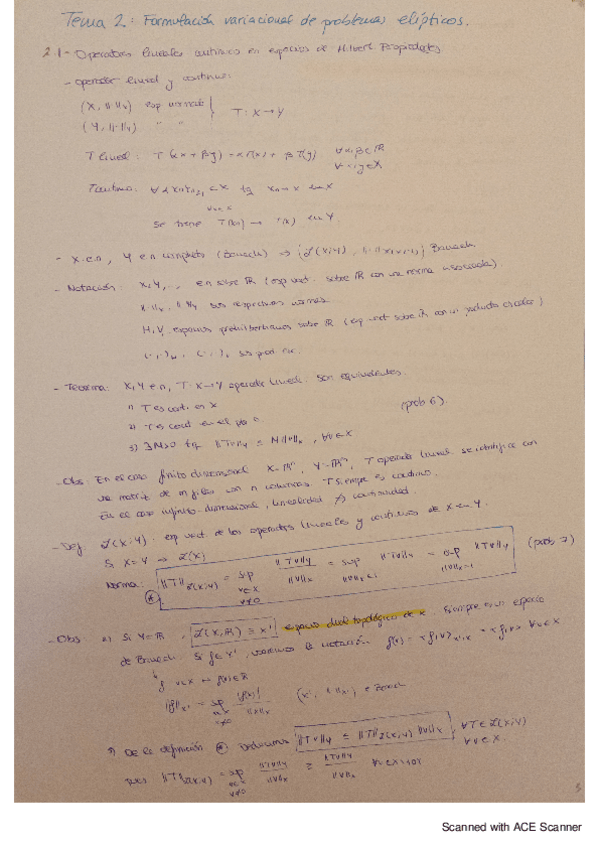 Tema 2: Formulación variacional de problemas elípticos.
2.1- Operadores lineales continuos en espacios de Hilbert. Propiedades
- operador lineal y continuo:
(X, ||·||x) esp normado
(Y, ||·||y) " " } T: X → Y
T lineal: T(αx + βy) = αT(x) + βT(y) ∀α,β∈ℝ
∀x,y∈X
Continuo: ⊂X tq xn → x en X
se tiene T(xn) → T(x) en Y
- X e.n, Y en completo (Banach) ⇒ (ℒ(X;Y), ||·||ℒ(X;Y)) Banach
- Notación: X, Y, .. en sobre ℝ (esp vect. sobre ℝ con una norma asociada).
||·||x, ||·||y sus respectivas normas.
H, V espacios prehilbertianos sobre ℝ (esp vect sobre ℝ con un producto escalar)
(·,·)H, (·,·)V sus
- Teorema: X, Y e n, T: X→Y operador lineal. Son equivalentes:
1) T es cont. en X
2) T es cont en el pto 0. (prob 6)
3) ∃M>0 tq ||Tv||y ≤ M||v||x, ∀v∈X
- Obs: En el caso finito dimensional X=ℝⁿ, Y=ℝᵐ, T operador lineal. se identifica con
una matriz de m filas con n columnas. T siempre es continuo.
En el caso infinito-dimensional, linealidad ⇏ continuidad.
- Def: ℒ(X;Y): esp vect. de los operadores lineales y continuos de X en Y.
Si X=Y → ℒ(X)
Norma: ||T||ℒ(X;Y) = sup ||Tv||y / ||v||x = sup ||Tv||y = sup ||Tv||y (prob 7)
v∈X
v≠0
- Obs a) Si Y=ℝ, ℒ(X,ℝ) = X' espacio dual topológico de X. Siempre es un espacio
de Banach. Si f∈X', usaremos la notación f(v) = <f,v>X',X = <f,v> ∀v∈X
||f||X' = sup |f(v)| / ||v||x (X', ||·||X') es Banach
b) De la definición ⊛ deducimos ||Tv||y ≤ ||T||ℒ(X;Y) ||v||x, ∀T∈ℒ(X;Y)
∀v∈X.
pues ||T||ℒ(X;Y) = sup ||Tv||y / ||v||x ≥ ||Tv||y / ||v||x ∀v∈X\{0}
Scanned with ACE Scanner